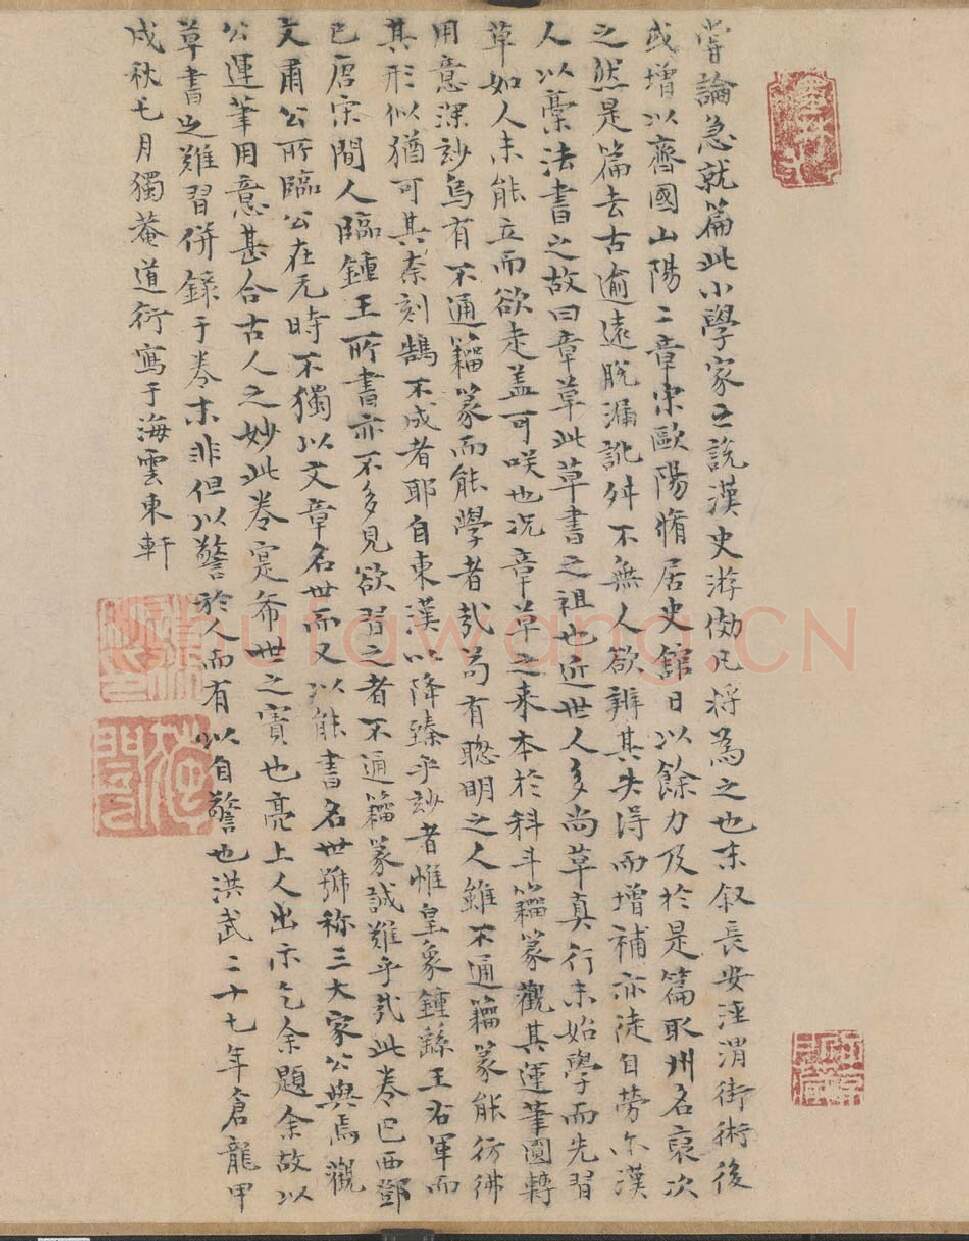 嘗論急就篇此小學家之說漢史游倣凡将為之也末叙長安涇渭街術後
或增以齊國山陽二章宋歐陽脩居史館日以餘力及於是篇取州名裒次
之然是篇去古逾遠脱漏訛舛不無人欲辨其失得而增補亦徒自勞尔漢
人以藁法書之故曰章草此草書之祖也近世人多尚草真行未始學而先習
草如人未能立而欲走盖可咲也况章草之来本於科斗籀篆觀其運筆圓轉
用意深玅烏有不通籀篆而能學者㢤苟有聦明之人雖不通籀篆能彷彿
其形似猶可其柰刻鵠不成者耶自東漢以降臻乎玅者惟皇象鍾繇王右軍而
已唐宋間人臨鍾王所書亦不多見欲習之者不通籀篆誠難乎㢤此卷巴西鄧
文肅公所臨公在元時不獨以文章名世而又以能書名世號称三大家公與焉觀
公運筆用意甚合古人之妙此卷寔希世之寳也亮上人出示乞余題余故以
草書之難習併錄于卷末非但以警於人而有以自警也洪武二十七年倉龍甲
戌秋七月獨菴道衍寫于海雲東軒
hufawang.CN